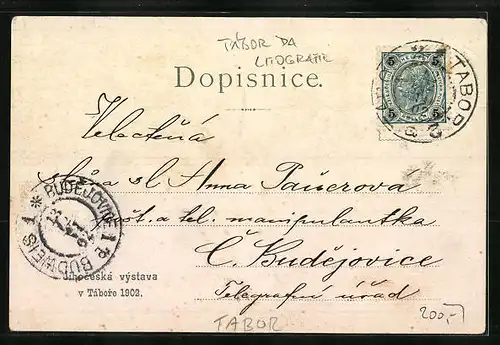 TÁBOR DA
LITOGRAFIE
Dopisnice.
5 5
5 5
TABOR 2
Velactěná
sl Anna Pauerová
pošt. a tel. manipulantka
Č. Budějovice
Telegrafní úřad
* BUDĚJOVICE 1 *
BUDWEIS 1
Jihočeská výstava
v Táboře 1902.
TABOR
200,-